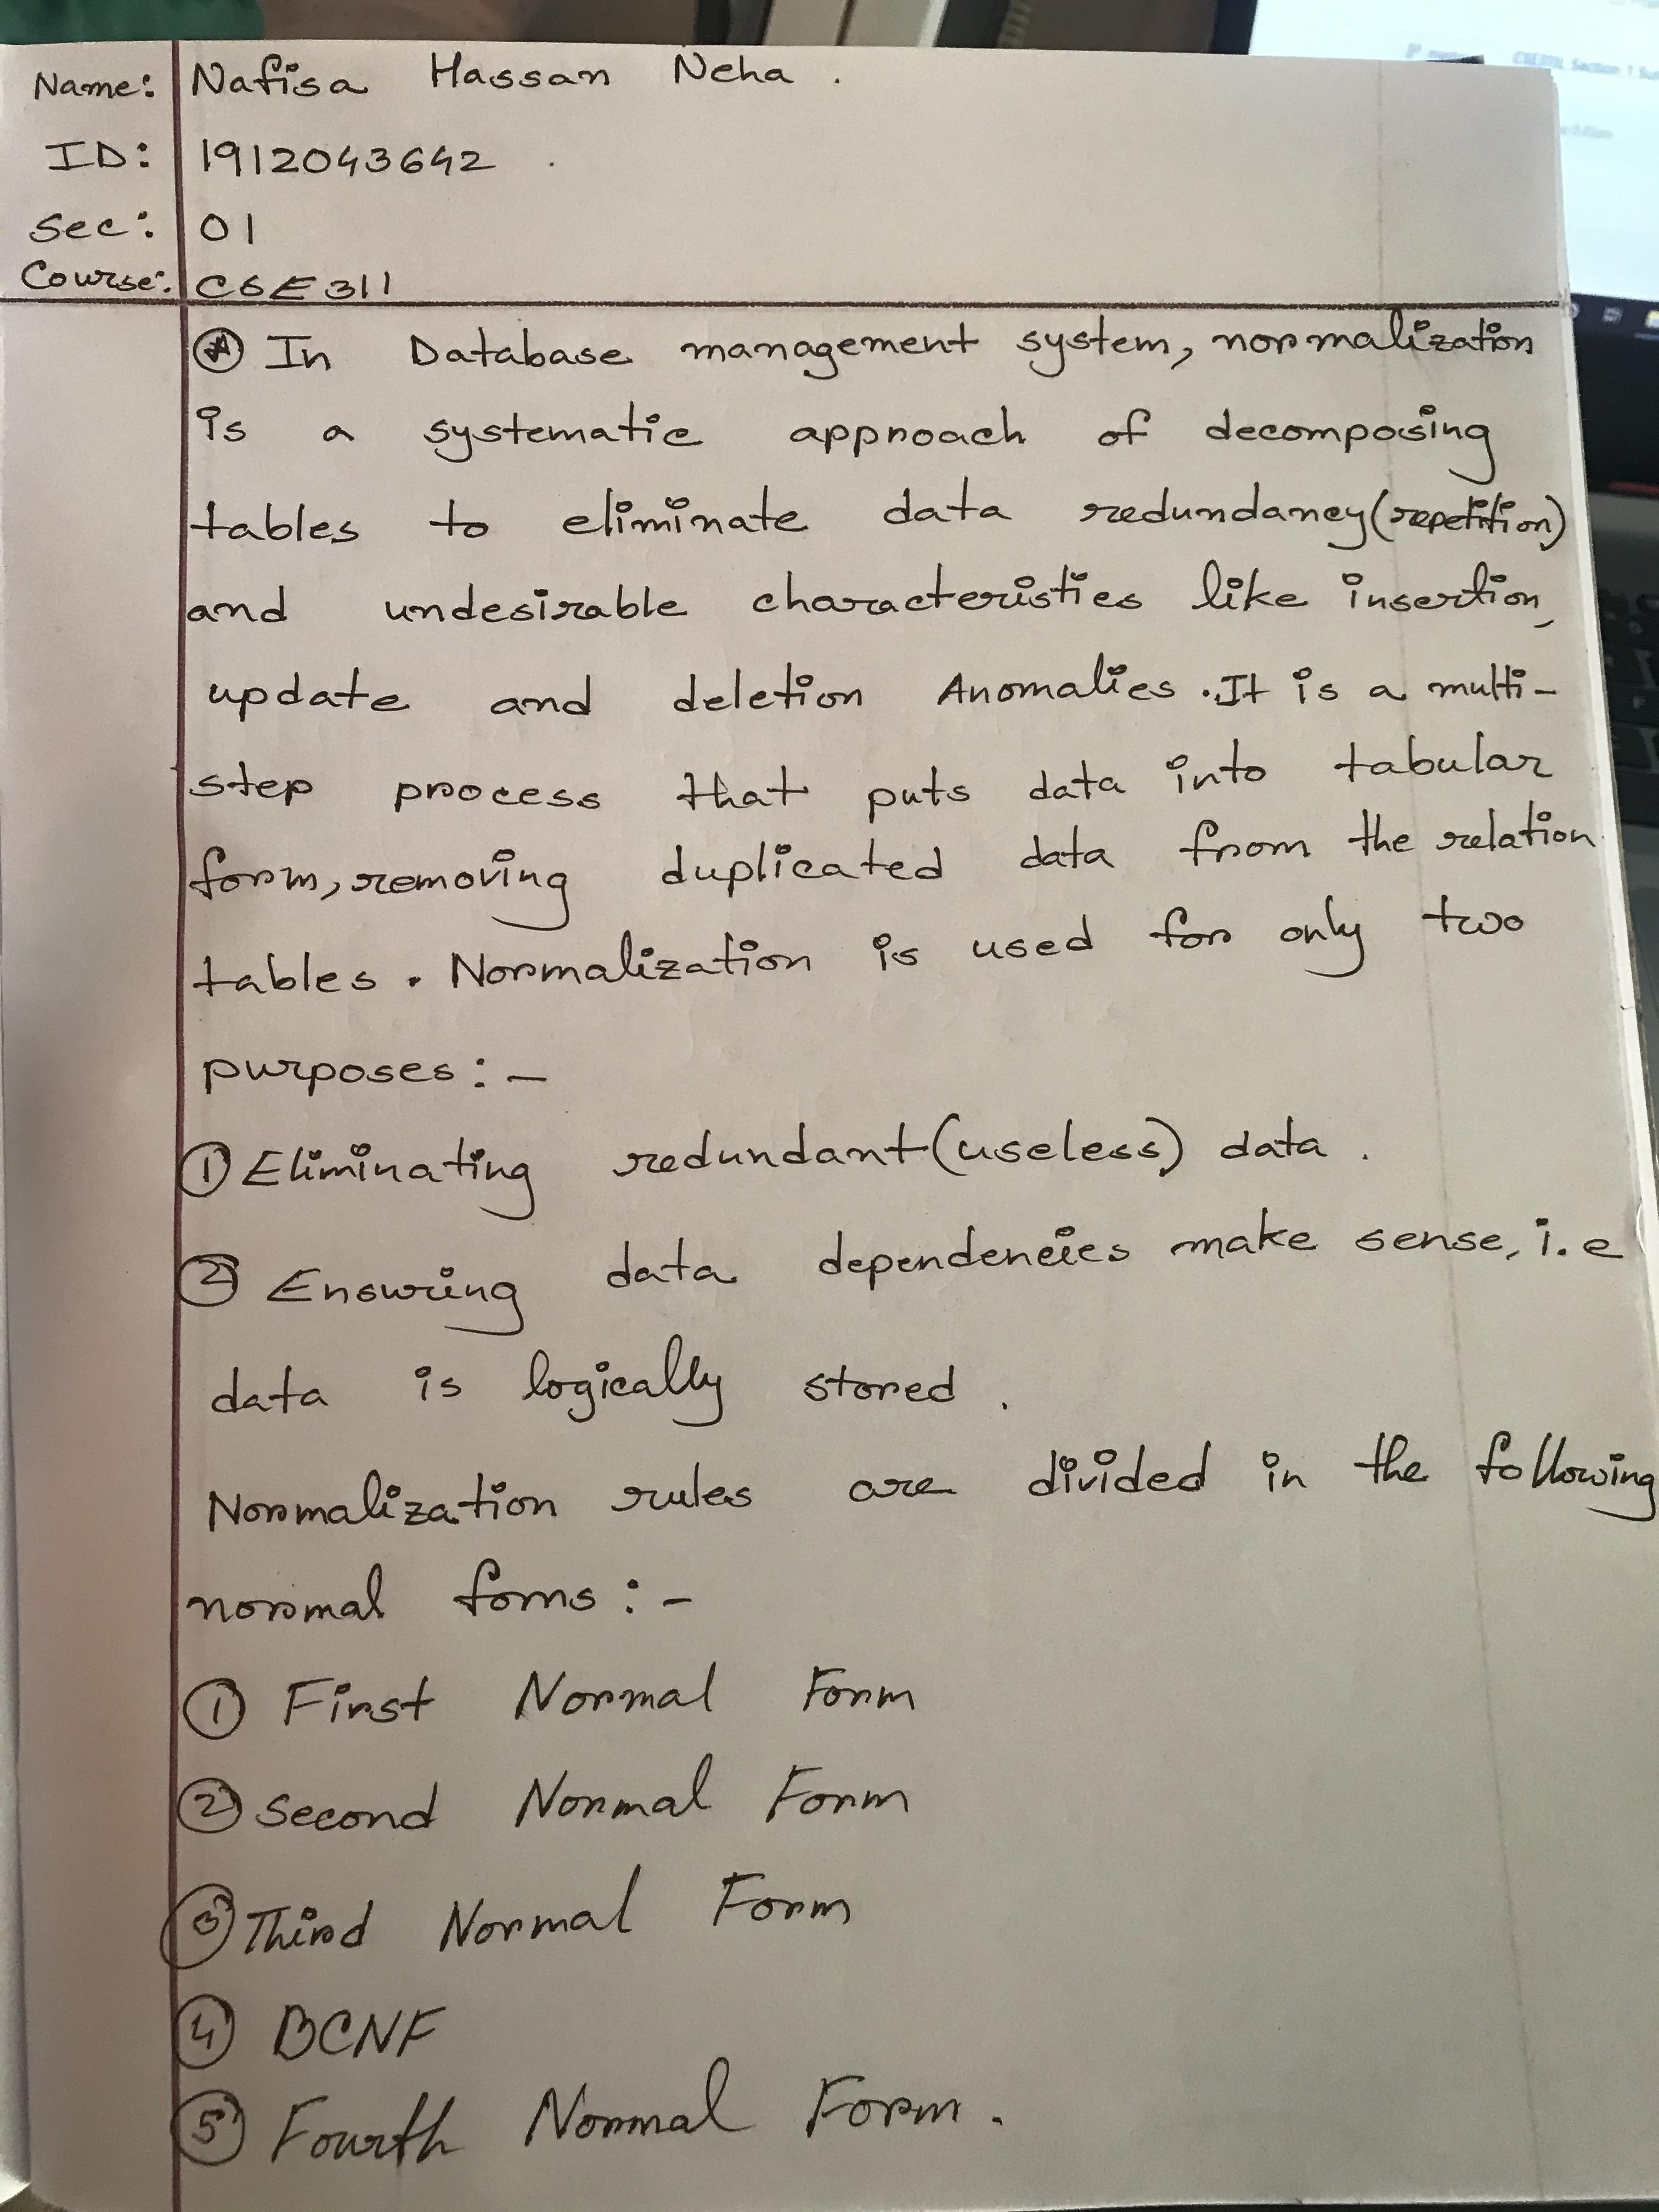 Name: Nafisa Hassan Neha .
ID: 1912043642 .
Sec: 01
Course: CSE311
In Database management system, normalization
is a systematic approach of decomposing
tables to eliminate data redundancy(repetition)
and undesirable characteristics like insertion,
update and deletion Anomalies. It is a multi-
step process that puts data into tabular
form, removing duplicated data from the relation
tables. Normalization is used for only two
purposes:-
① Eliminating redundant(useless) data.
② Ensuring data dependencies make sense, i.e
data is logically stored.
Normalization rules are divided in the following
normal forms:-
① First Normal Form
② Second Normal Form
③ Third Normal Form
④ BCNF
⑤ Fourth Normal Form.